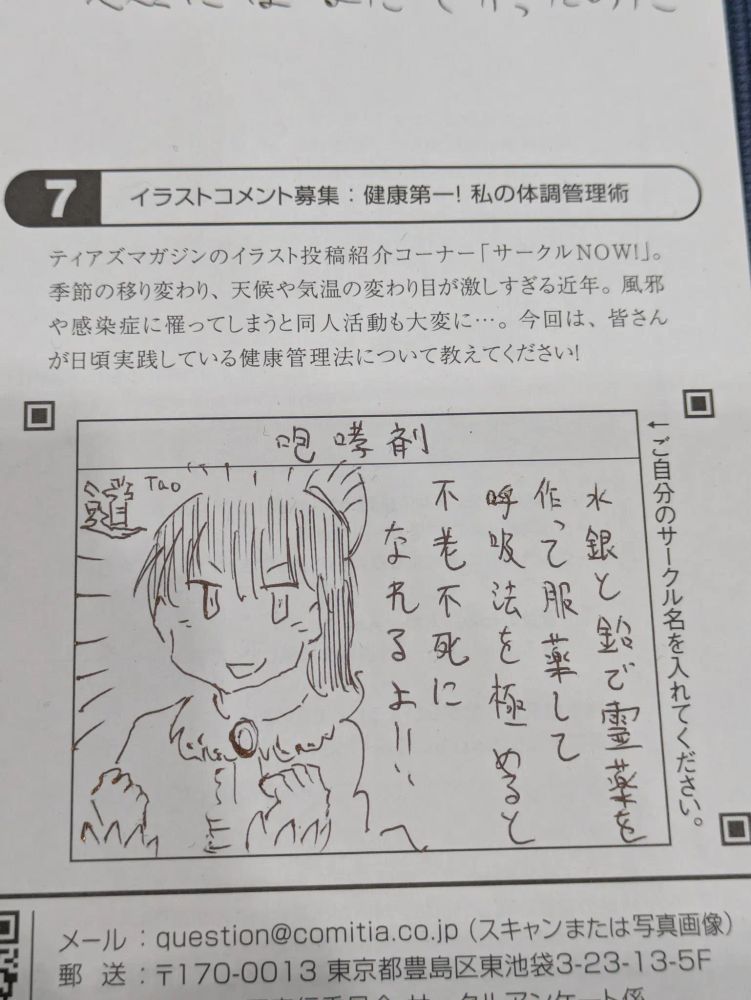 7
イラストコメント募集：健康第一！私の体調管理術
ティアズマガジンのイラスト投稿紹介コーナー「サークルNOW!」。
季節の移り変わり、天候や気温の変わり目が激しすぎる近年。風邪
や感染症に罹ってしまうと同人活動も大変に…。今回は、皆さん
が日頃実践している健康管理法について教えてください！
咆哮剤
←ご自分のサークル名を入れてください。
水銀と鉛で霊薬を
作って服薬して
呼吸法を極めると
不老不死に
なれるよ!!
道
Tao
メール：question@comitia.co.jp（スキャンまたは写真画像）
郵 送：〒170-0013 東京都豊島区東池袋3-23-13-5F